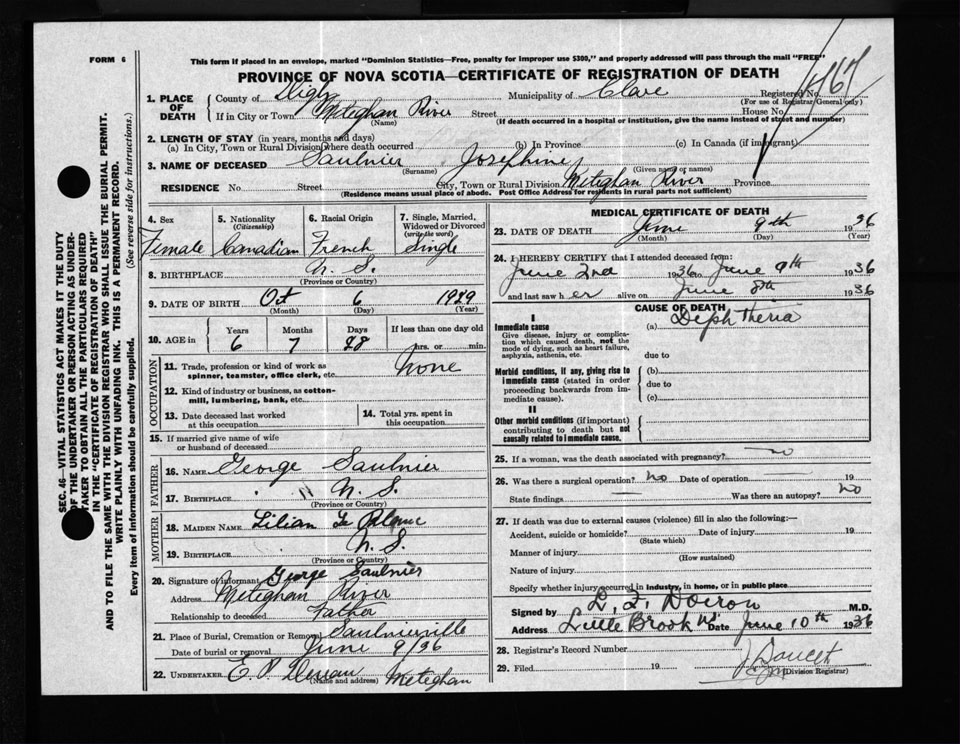 FORM 6
This form if placed in an envelope, marked "Dominion Statistics—Free, penalty for improper use $300," and properly addressed will pass through the mail "FREE"
PROVINCE OF NOVA SCOTIA—CERTIFICATE OF REGISTRATION OF DEATH
SEC. 46—VITAL STATISTICS ACT MAKES IT THE DUTY
OF THE UNDERTAKER OR PERSON ACTING AS UNDER-
TAKER TO OBTAIN ALL THE PARTICULARS REQUIRED
IN THE "CERTIFICATE OF REGISTRATION OF DEATH"
AND TO FILE THE SAME WITH THE DIVISION REGISTRAR WHO SHALL ISSUE THE BURIAL PERMIT.
WRITE PLAINLY WITH UNFADING INK. THIS IS A PERMANENT RECORD.
Every item of information should be carefully supplied. (See reverse side for instructions.)
1. PLACE OF DEATH County of Digby Municipality of Clare Registered No.
(For use of Registrar General only)
If in City or Town Meteghan River Street House No.
(Name) (If death occurred in a hospital or institution, give the name instead of street and number)
2. LENGTH OF STAY (in years, months and days)
(a) In City, Town or Rural Division where death occurred (b) In Province (c) In Canada (if immigrant)
3. NAME OF DECEASED Saulnier Josephine
(Surname) (Given name or names)
RESIDENCE No. Street City, Town or Rural Division Meteghan River Province
(Residence means usual place of abode. Post Office Address for residents in rural parts not sufficient)
4. Sex Female
5. Nationality (Citizenship) Canadian
6. Racial Origin French
7. Single, Married, Widowed or Divorced (write the word) Single
8. BIRTHPLACE N. S.
(Province or Country)
9. DATE OF BIRTH Oct 6 1929
(Month) (Day) (Year)
10. AGE in Years 6 Months 7 Days 28 If less than one day old hrs. or min.
OCCUPATION
11. Trade, profession or kind of work as spinner, teamster, office clerk, etc. None
12. Kind of industry or business, as cotton-mill, lumbering, bank, etc.
13. Date deceased last worked at this occupation
14. Total yrs. spent in this occupation
15. If married give name of wife or husband of deceased
FATHER
16. NAME George Saulnier
17. BIRTHPLACE " N. S.
(Province or Country)
MOTHER
18. MAIDEN NAME Lilian
19. BIRTHPLACE N. S.
(Province or Country)
20. Signature of informant George Saulnier
Address Meteghan River
Relationship to deceased Father
21. Place of Burial, Cremation or Removal Saulnierville
Date of burial or removal June 9/36
22. UNDERTAKER E. P. Meteghan
(Name and address)
MEDICAL CERTIFICATE OF DEATH
23. DATE OF DEATH June 9th 1936
(Month) (Day) (Year)
24. I HEREBY CERTIFY that I attended deceased from:
June 2nd 1936 to June 9th 1936
and last saw her alive on June 8th 1936
CAUSE OF DEATH
I
Immediate cause (a) Diphtheria
Give disease, injury or complication which caused death, not the mode of dying, such as heart failure, asphyxia, asthenia, etc.
due to
Morbid conditions, if any, giving rise to immediate cause (stated in order proceeding backwards from immediate cause).
(b)
due to
(c)
II
Other morbid conditions (if important) contributing to death but not causally related to immediate cause.
25. If a woman, was the death associated with pregnancy? no
26. Was there a surgical operation? No Date of operation 19
State findings — Was there an autopsy? No
27. If death was due to external causes (violence) fill in also the following:—
Accident, suicide or homicide? Date of injury 19
(State which)
Manner of injury
(How sustained)
Nature of injury
Specify whether injury occurred in industry, in home, or in public place
Signed by L. F. Doiron M.D.
Address Little Brook Date June 10th 1936
28. Registrar's Record Number
29. Filed 19 J Doucet
(Division Registrar)